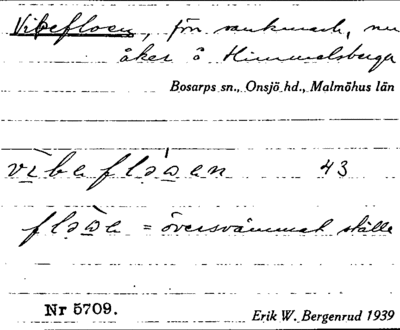 Vibefloen, förr sankmark, nu
åker å Himmelsberga
Bosarps sn., Onsjö hd., Malmöhus län
vìbeflə̀ωen 43
flə̀ωe = översvämmat ställe
Nr 5709.
Erik W. Bergenrud 1939